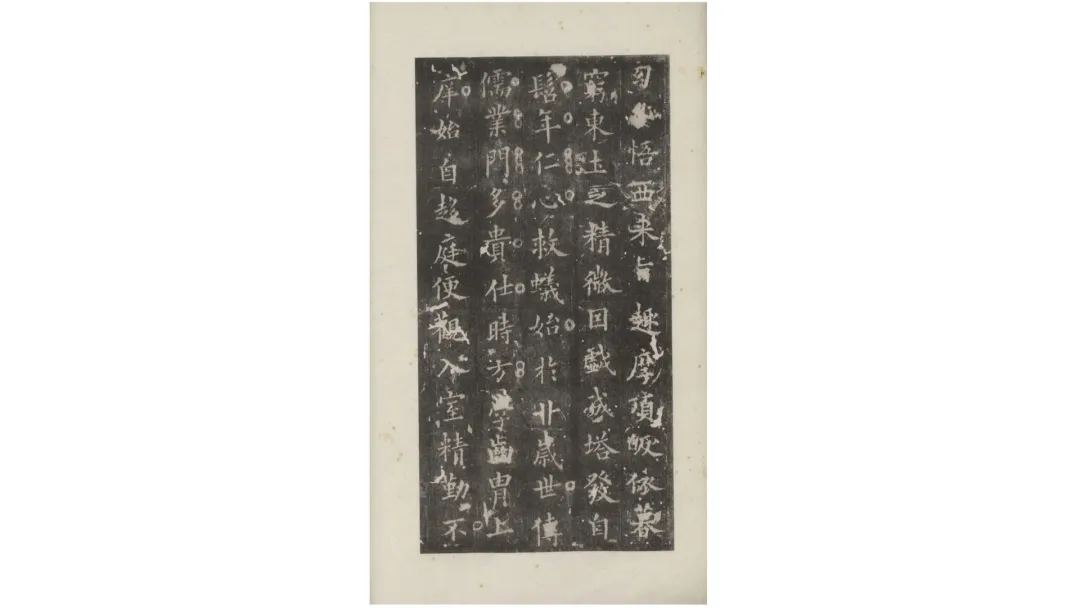 悟西來旨趣摩頂皈依
窮東土之精微因戲成塔發自
髫年仁心救蟻始於丱歲世傳
儒業門多貴仕時方學齒胄上
庠始自趍庭便觀入室精勤不